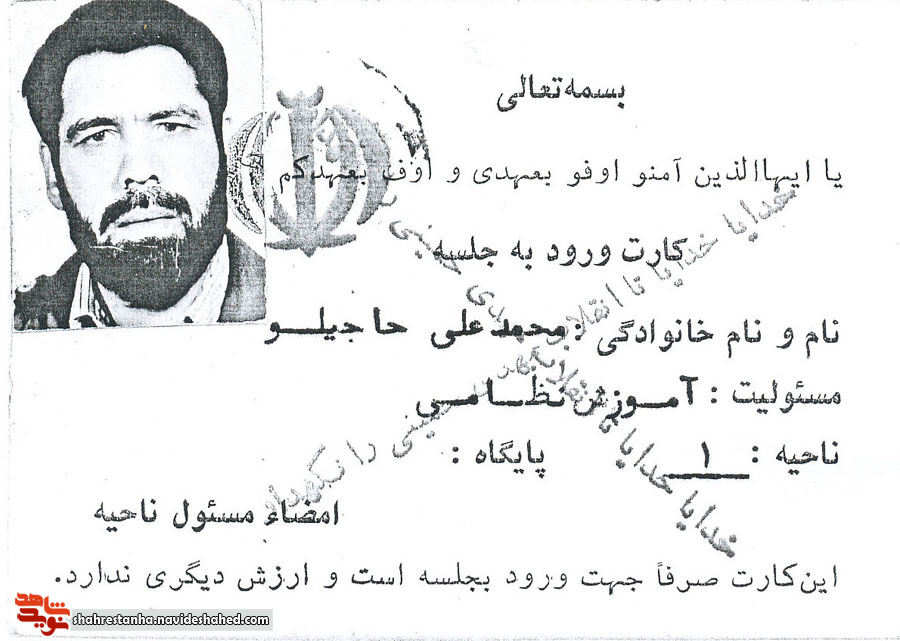 بسمه‌تعالی
یا ایهاالذین آمنو اوفو بعهدی و اوف بعهدکم
کارت ورود به جلسه
نام و نام خانوادگی : محمدعلی حاجیلو
مسئولیت : آموزش نظامی
ناحیه : ۱ پایگاه :
امضاء مسئول ناحیه
این‌کارت صرفاً جهت ورود بجلسه است و ارزش دیگری ندارد.
خدایا خدایا تا انقلاب مهدی خمینی
خدایا خدایا تا انقلاب مهدی خمینی را نگهدار
نوید شاهد
shahrestanha.navideshahed.com